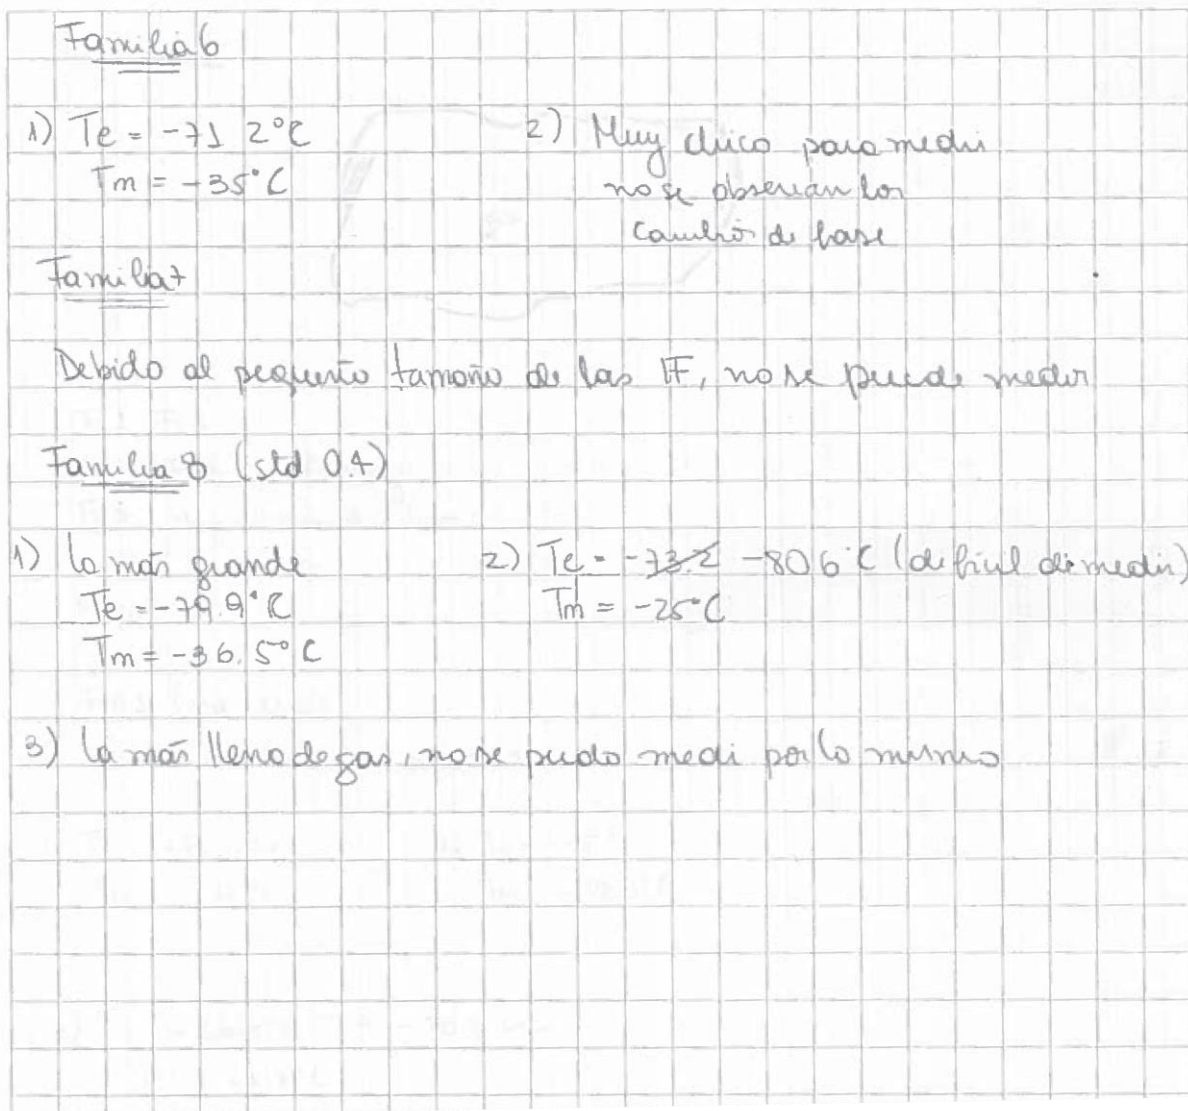 Familia 6
1) Te = -71 2°C
Tm = -35°C
2) Muy chico para medir
no se observan los
cambios de fase
Familia 7
Debido al pequeño tamaño de las IF, no se puede medir
Familia 8 (std 0.4)
1) la más grande
Te = -79.9°C
Tm = -36.5°C
2) Te = -73.2 -80 6°C (dificil de medir)
Tm = -25°C
3) la más lleno de gas, no se pudo medi por lo mismo